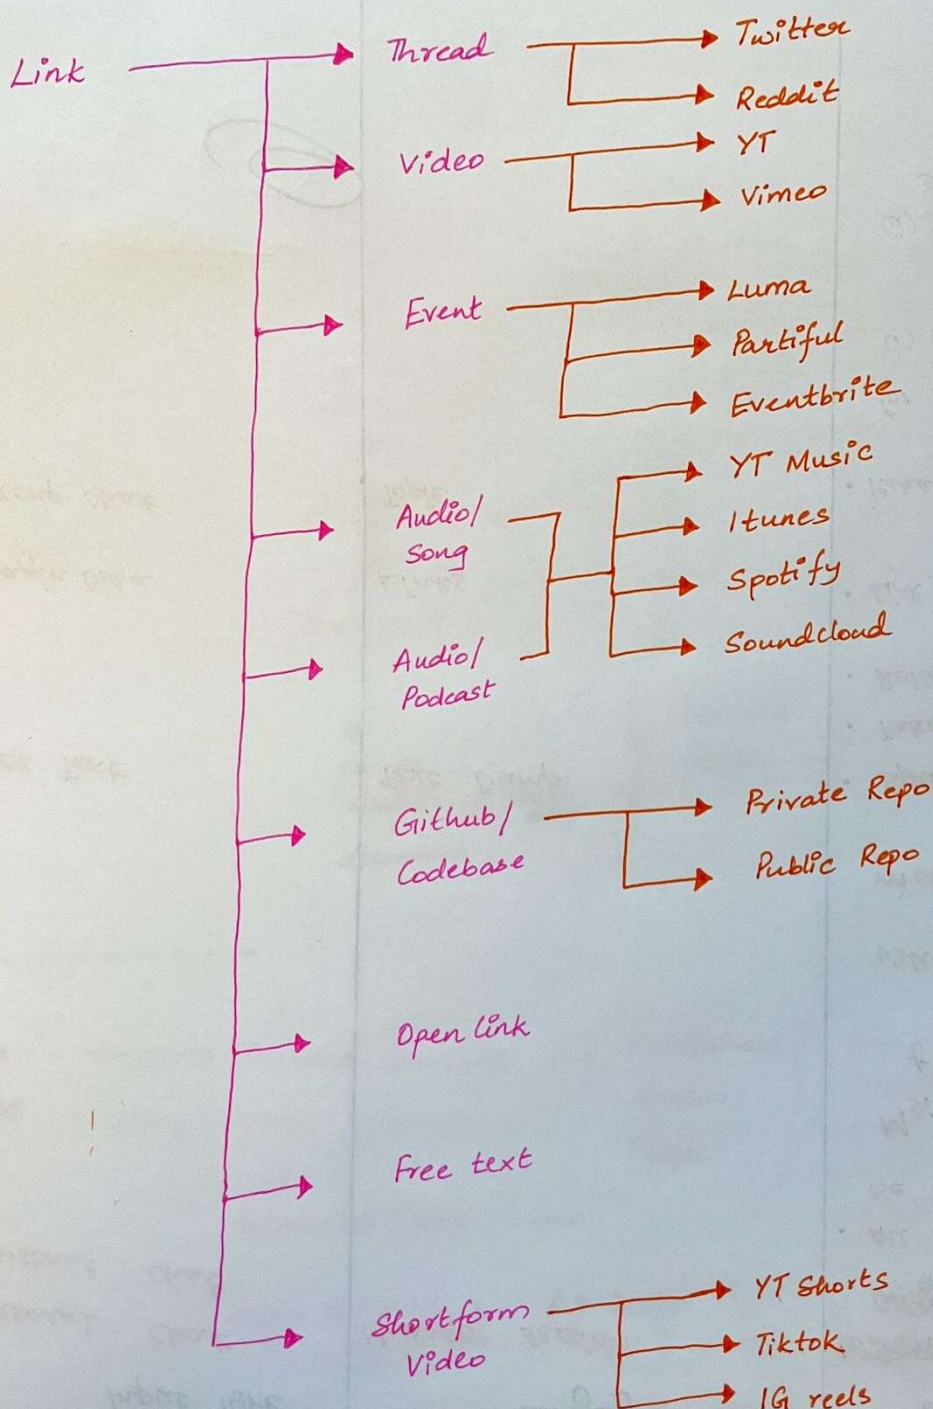 Link
Thread
Twitter
Reddit
Video
YT
Vimeo
Event
Luma
Partiful
Eventbrite
Audio/
Song
Audio/
Podcast
YT Music
Itunes
Spotify
Soundcloud
Github/
Codebase
Private Repo
Public Repo
Open link
Free text
Shortform
Video
YT Shorts
Tiktok
IG reels